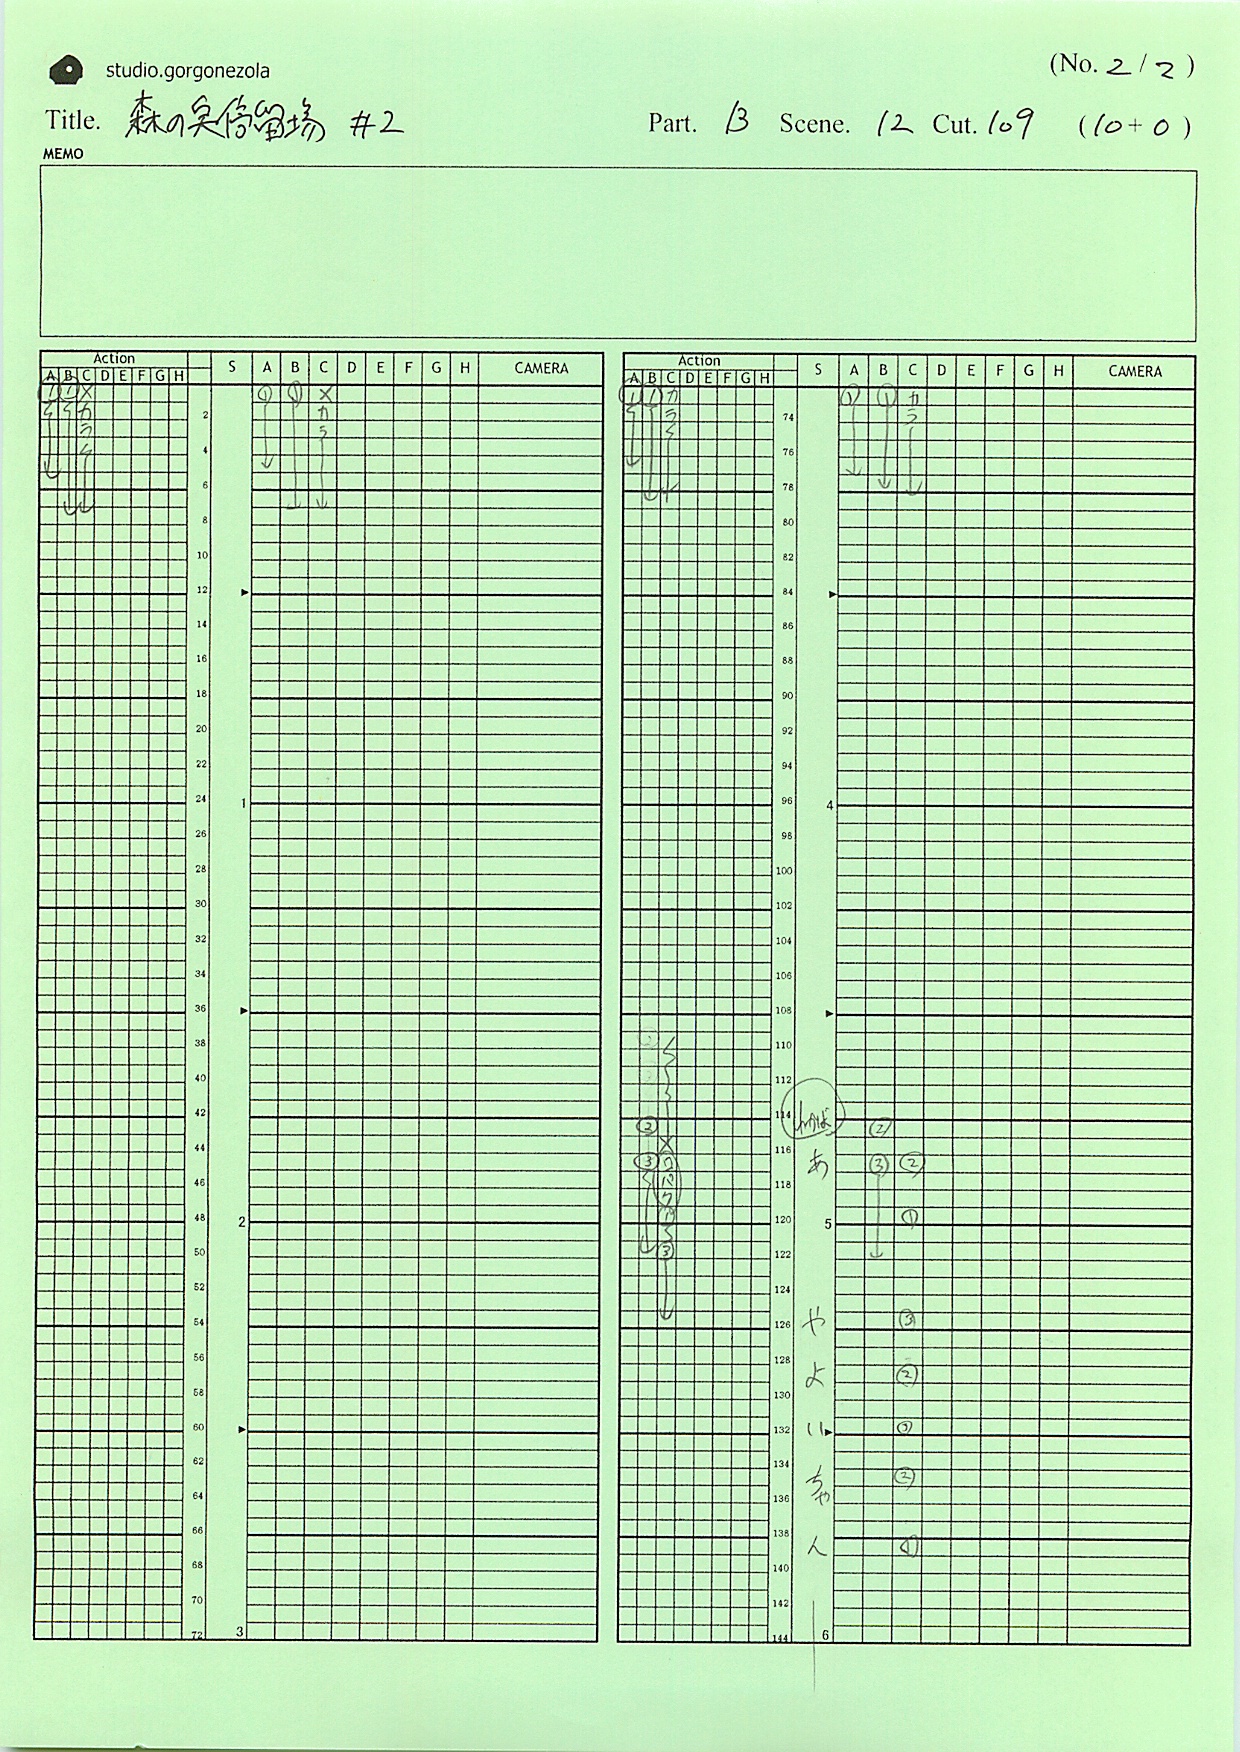 studio.gorgonezola
(No. 2 / 2 )
Title. 森の実停留場 #2
Part. B Scene. 12 Cut. 109 (10 + 0 )
MEMO
Action
A B C D E F G H
S A B C D E F G H CAMERA
1 1 × ① ① ×
カ カ
ラ ラ
2
4
6
8
10
12
14
16
18
20
22
24 1
26
28
30
32
34
36
38
40
42
44
46
48 2
50
52
54
56
58
60
62
64
66
68
70
72 3
Action
A B C D E F G H
S A B C D E F G H CAMERA
1 1 カ ① ① カ
ラ ラ
74
76
78
80
82
84
86
88
90
92
94
96 4
98
100
102
104
106
108
110
112
114
② ②
116
×
③ あ ③ ②
118
120 5 ①
③
122
124
126 や ③
128
よ ②
130
132 い ③
134
ちゃ ②
136
138
ん ①
140
142
144 6